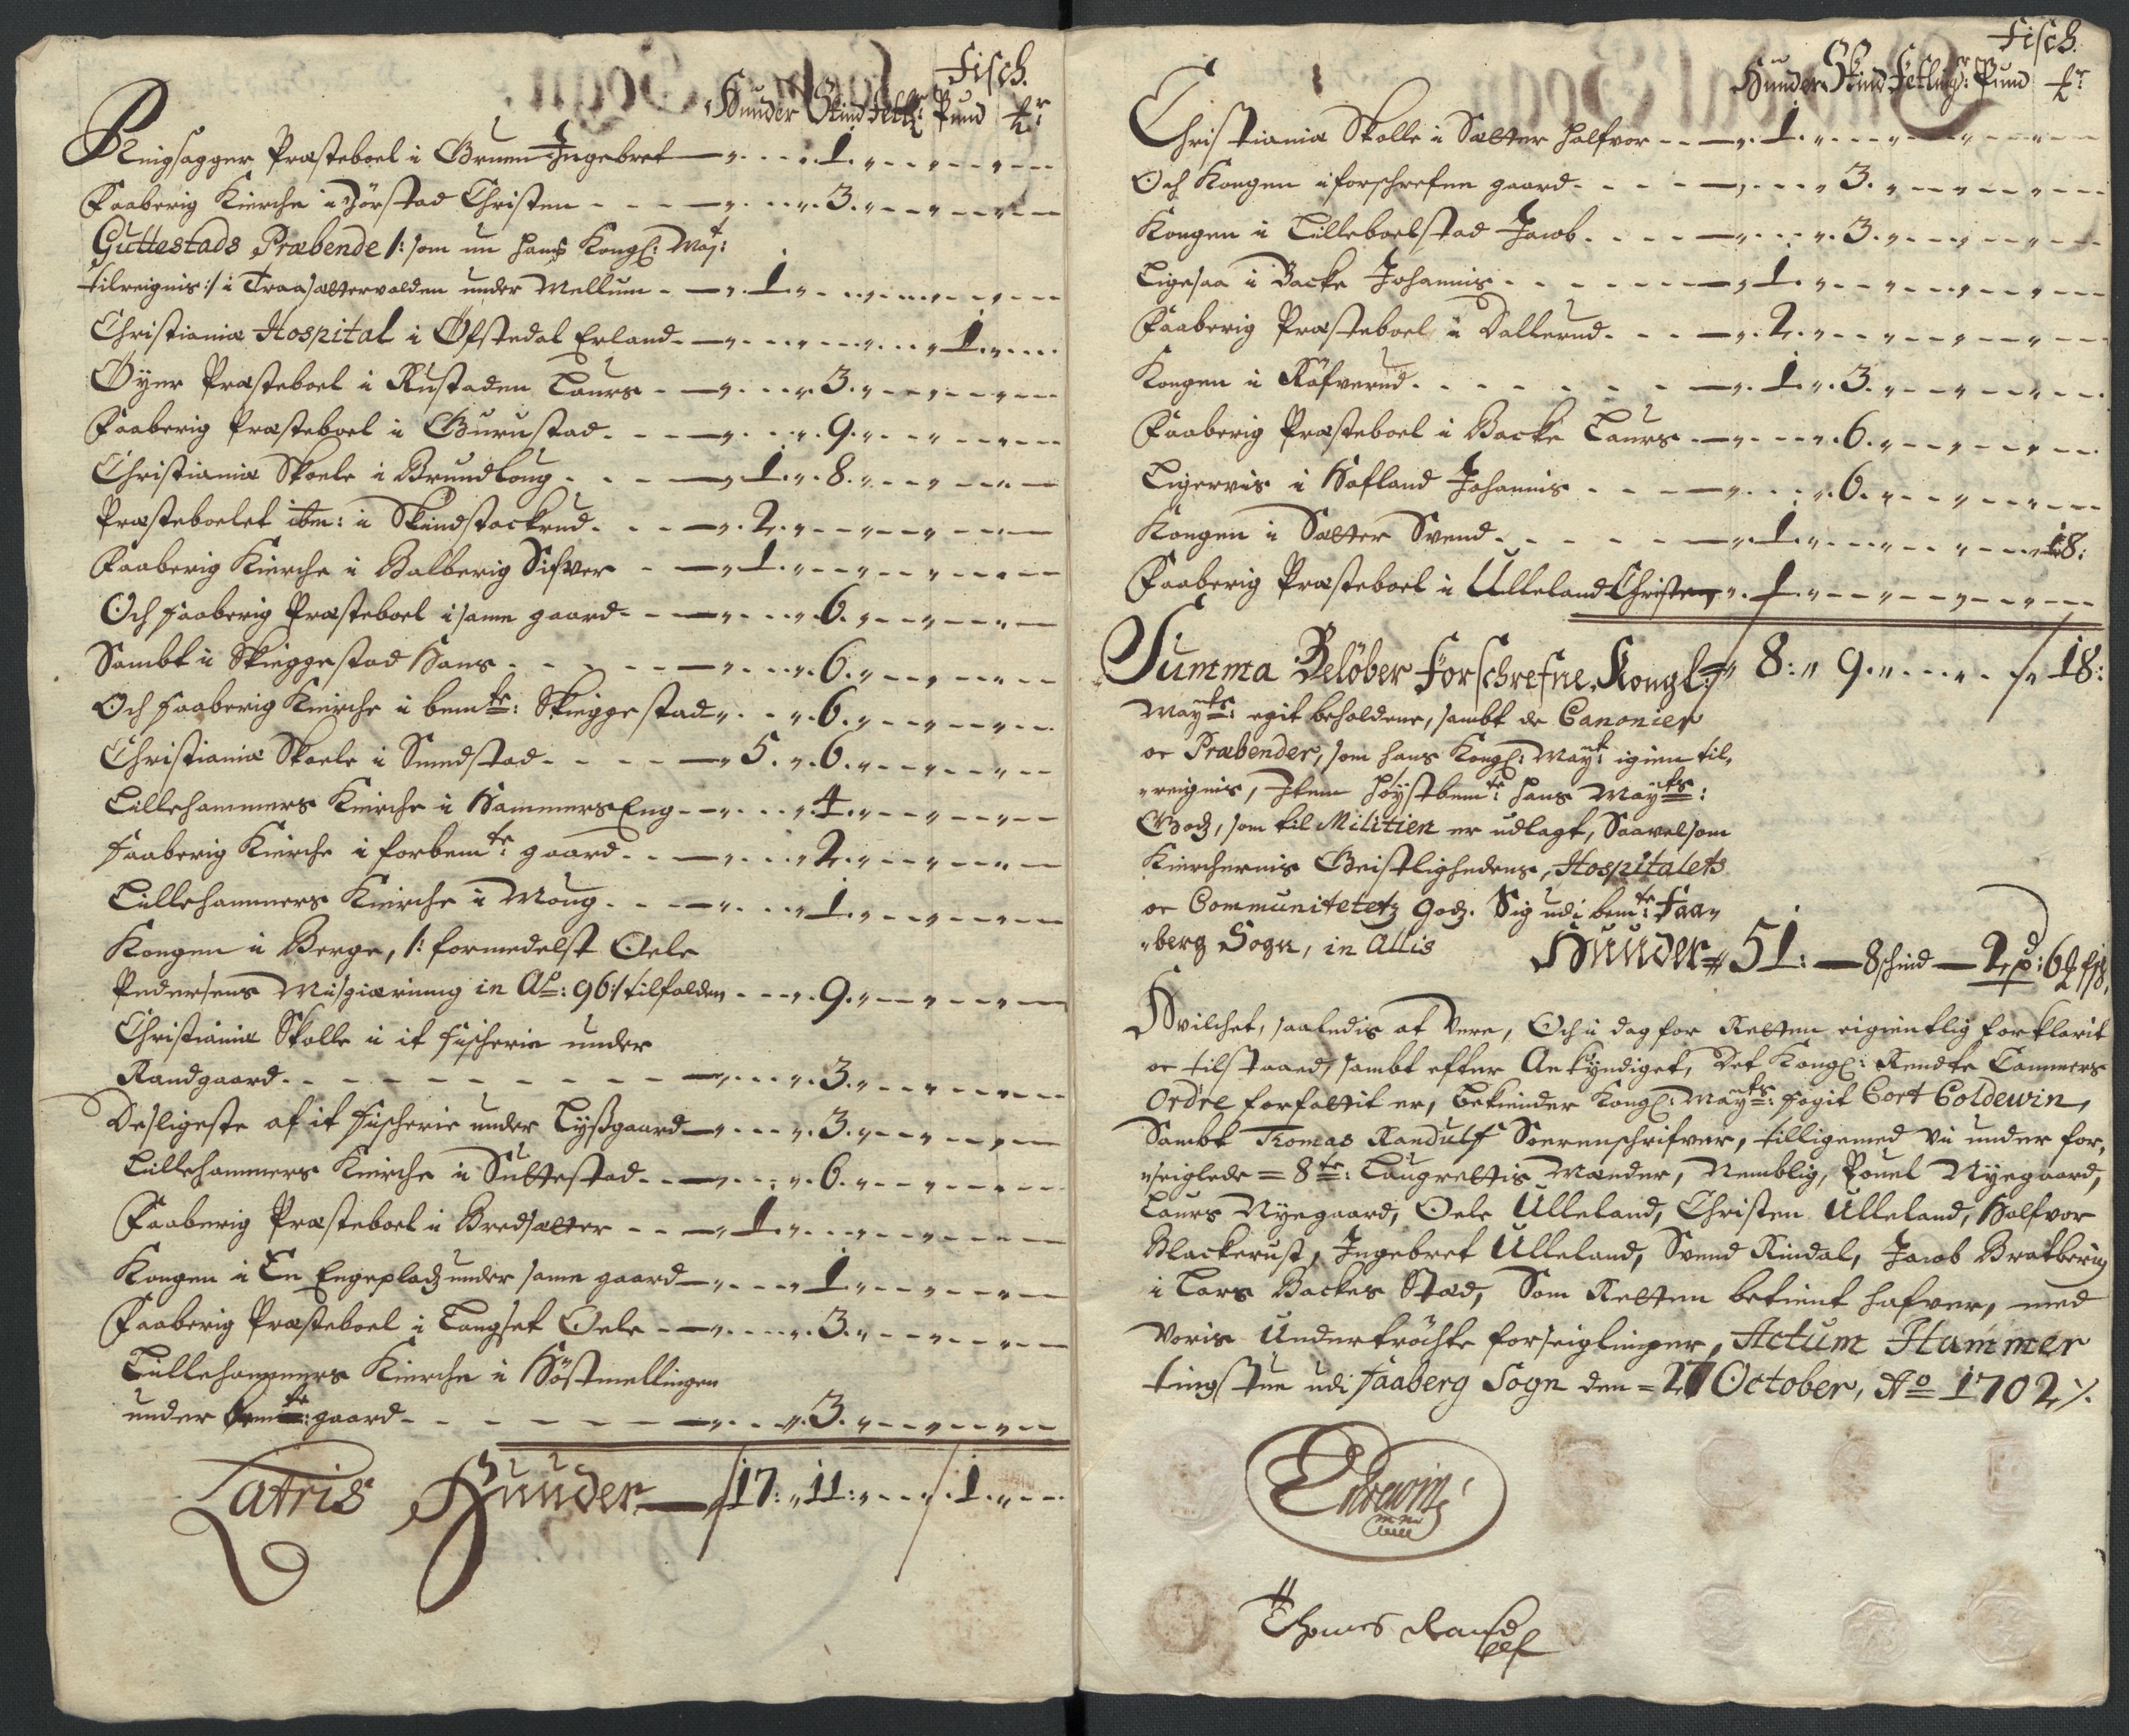 Fisch.
Hunder Skind Fetl: Pund ℔r
Ringsagger Præsteboel i Gruen Ingebret —„- - - „1.„- - „- - „- -
Faaberig Kierche i Jörstad Christen - - - —„- - - „3.„- - „- - „- -
Guttestads Præbende /: som nu hans Kongl: Maj:t
tilreignis :/ i Traasættervolden under Mellum - —„1.„- - „- - „- - „- -
Christiania Hospital i Öfstedal Erland - —„- - „- - „- - „1.„- -
Öyer Præsteboel i Rustaden Laurs - —„- - - „3.„- - „- - „- -
Faaberig Præsteboel i Gurustad - - - —„- - - „9.„- - „- - „- -
Christiania Skoele i Brundloug - - - —„1.„8.„- - „- - „- -
Præsteboelet ibm: i Skindstockrud - - —„2.„- - „- - „- - „- -
Faaberig Kierche i Balberig Sifver - —„1.„- - „- - „- - „- -
Och Faaberig Præsteboel i same gaard - - —„- - - „6.„- - „- - „- -
Sambt i Skieggestad Hans - - - - —„- - - „6.„- - „- - „- -
Och Faaberig Kierche i bemte: Skieggestad „- - - „6.„- - „- - „- -
Christiania Skoele i Sundstad - - - —„5.„6.„- - „- - „- -
Lillehammers Kierche i Hammers Eng - —„- - - „4.„- - „- - „- -
Faaberig Kierche i forbemte: gaard - - —„- - - „2.„- - „- - „- -
Lillehammers Kierche i Moug - - - —„- - - „1.„- - „- - „- -
Kongen i Berge, /: formedelst Oele
Pedersens Misgierning in Ao: 96 :/ tilfalden - - - „9.„- - „- - „- -
Christiania Skolle i it Fischerie under
Randgaard - - - - - - - - —„- - - „3.„- - „- - „- -
Desligeste af it Fischerie under Lyssgaard —„- - - „3.„- - „- - „- -
Lillehammers Kierche i Suttestad - - —„- - - „6.„- - „- - „- -
Faaberig Præsteboel i Bredsætter - - —„1.„- - „- - „- - „- -
Kongen i En Engepladz under same gaard —„- - - „1.„- - „- - „- -
Faaberig Præsteboel i Langset Oele - —„- - - „3.„- - „- - „- -
Lillehammers Kierche i Höstmellingen
under bemte: gaard - - - - - - —„- - - „3.„- - „- - „- -
Latris Huuder — 17: „11: „- - „1.„- -
Fisch.
Hunder Skind Fetling: Pund ℔r
Christiania Skolle i Sætter Halfvor - - —„1.„- - „- - „- - „- -
Och Kongen i forschrefne gaard - - - - —„- - - „3.„- - „- - „- -
Kongen i Lilleboelstad Jacob - - - - —„- - - „3.„- - „- - „- -
Ligesaa i Backe Johannis - - - - - —„1.„- - „- - „- - „- -
Faaberig Præsteboel i Dallerud - - - —„2.„- - „- - „- - „- -
Kongen i Röfverud - - - - - - - —„1.„3.„- - „- - „- -
Faaberig Præsteboel i Backe Laurs - —„- - - „6.„- - „- - „- -
Ligervis i Hofland Johannis - - - —„- - - „6.„- - „- - „- -
Kongen i Sætter Svend - - - - - —„1.„- - „- - „- - „18:
Faaberig Præsteboel i Ulleland Christen „1.„- - „- - „- - „- -
Summa Belöber Forschrefne Kongl: 8: „9.„- - - „18:
Mayts: egit beholdene, sambt de Canonier
oc Præbender, som hans Kongl: Mayt: igien til„
„reignis, Item höystbemte: hans Mayts:
Godz, som til Militien er udlagt, Saavelsom
Kierchernis Geistlighedens, Hospitalets
oc Communitetetz godz. Sig udi bemte: Faa„
„berg Sogn, in allis Huuder 51: — 8 schind — 2 pd: 6 ℔ fisk.
Hvilchet, saaledis at Være, Och i dag for Retten eigientlig forklarit
oc tilstaaed, sambt efter Ankyndiget, Det Kongl: Rendte Cammers
Ordre forfattit er, bekiender Kongl: Mayts: fogit Cort Coldewin,
Sambt Thomas Randulf Sorenschrifver, tilligemed vii under for„
„seiglede = 8te: Laugrettis Mænder, Nemblig, Pouel Nyegaard,
Laurs Nyegaard, Oele Ulleland, Christen Ulleland, Halfvor
Blackerust, Ingebret Ulleland, Svend Rindal, Jacob Bratberig
i Lars Backes Stad, Som Retten betient hafver, med
Voris Undertröchte forseiglinger, Actum Hammer
tingstue udi Faaberg Sogn den = 27 October, Ao 1702 ⁒.
Coldewin
Thomes Randulf